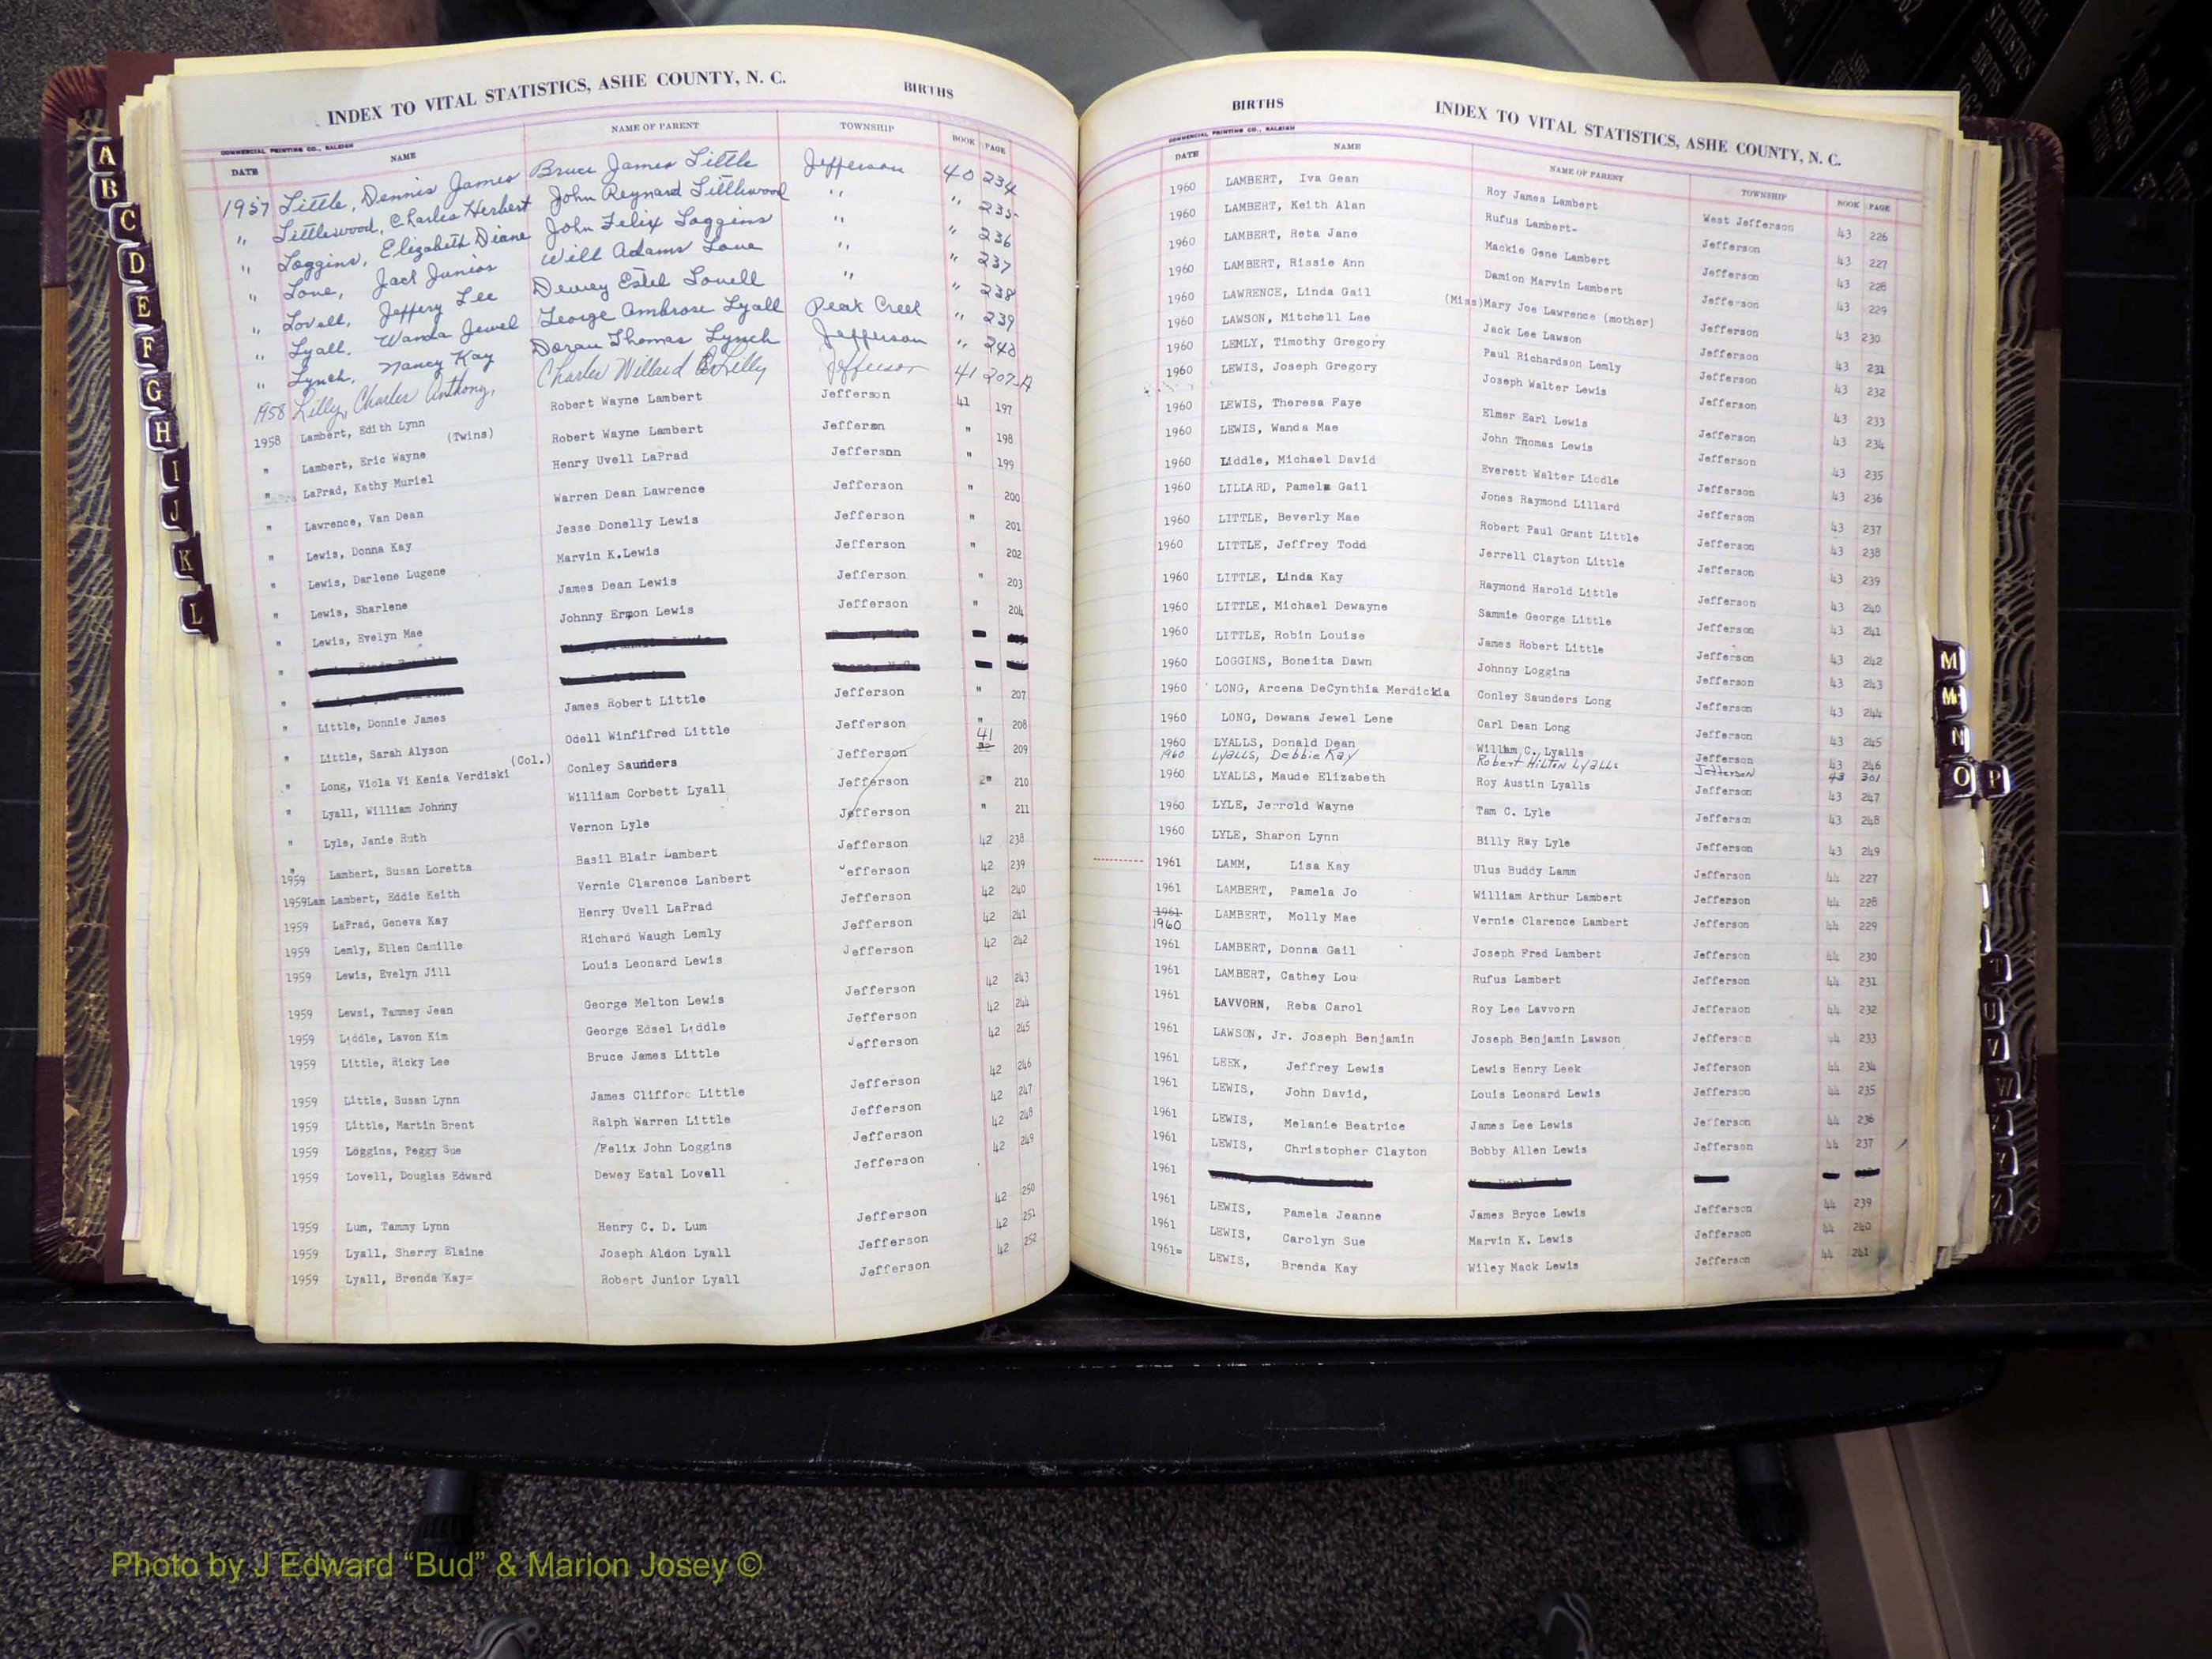 INDEX TO VITAL STATISTICS, ASHE COUNTY, N. C. BIRTHS
COMMERCIAL PRINTING CO., RALEIGH
DATE NAME NAME OF PARENT TOWNSHIP BOOK PAGE
1957 Little, Dennis James Bruce James Little Jefferson 40 234
" Littlewood, Charles Herbert John Reynard Littlewood " " 235
" Loggins, Elizabeth Diane John Felix Loggins " " 236
" Love, Jack Junior Will Adams Love " " 237
" Lovell, Jeffery Lee Dewey Estel Lovell " " 238
" Lyall, Wanda Jewel George Ambrose Lyall Peak Creek " 239
" Lynch, Nancy Kay Doran Thomas Lynch Jefferson " 240
1958 Lilly, Charles Anthony, Charles Willard Lilly Jefferson 41 207-A
1958 Lambert, Edith Lynn Robert Wayne Lambert Jefferson 41 197
(Twins)
" Lambert, Eric Wayne Robert Wayne Lambert Jefferson " 198
" LaPrad, Kathy Muriel Henry Uvell LaPrad Jefferson " 199
" Lawrence, Van Dean Warren Dean Lawrence Jefferson " 200
" Lewis, Donna Kay Jesse Donelly Lewis Jefferson " 201
" Lewis, Darlene Lugene Marvin K.Lewis Jefferson " 202
" Lewis, Sharlene James Dean Lewis Jefferson " 203
" Lewis, Evelyn Mae Johnny Ermon Lewis Jefferson " 204
"
"
" Little, Donnie James James Robert Little Jefferson " 207
" Little, Sarah Alyson Odell Winfifred Little Jefferson " 208
" Long, Viola Vi Kenia Verdiski (Col.) Conley Saunders Jefferson 41 209
" Lyall, William Johnny William Corbett Lyall Jefferson 210
" Lyle, Janie Ruth Vernon Lyle Jefferson " 211
" 1959 Lambert, Susan Loretta Basil Blair Lambert Jefferson 42 238
1959Lam Lambert, Eddie Keith Vernie Clarence Lanbert Jefferson 42 239
1959 LaPrad, Geneva Kay Henry Uvell LaPrad Jefferson 42 240
1959 Lemly, Ellen Camille Richard Waugh Lemly Jefferson 42 241
1959 Lewis, Evelyn Jill Louis Leonard Lewis Jefferson 42 242
1959 Lewsi, Tammey Jean George Melton Lewis Jefferson 42 243
1959 Liddle, Lavon Kim George Edsel Liddle Jefferson 42 244
1959 Little, Ricky Lee Bruce James Little Jefferson 42 245
1959 Little, Susan Lynn James Clifford Little Jefferson 42 246
1959 Little, Martin Brent Ralph Warren Little Jefferson 42 247
1959 Loggins, Peggy Sue /Felix John Loggins Jefferson 42 248
1959 Lovell, Douglas Edward Dewey Estal Lovell Jefferson 42 249
1959 Lum, Tammy Lynn Henry C. D. Lum Jefferson 42 250
1959 Lyall, Sherry Elaine Joseph Aldon Lyall Jefferson 42 251
1959 Lyall, Brenda Kay= Robert Junior Lyall Jefferson 42 252
BIRTHS INDEX TO VITAL STATISTICS, ASHE COUNTY, N. C.
COMMERCIAL PRINTING CO., RALEIGH
DATE NAME NAME OF PARENT TOWNSHIP BOOK PAGE
1960 LAMBERT, Iva Gean Roy James Lambert West Jefferson 43 226
1960 LAMBERT, Keith Alan Rufus Lambert- Jefferson 43 227
1960 LAMBERT, Reta Jane Mackie Gene Lambert Jefferson 43 228
1960 LAMBERT, Rissie Ann Damion Marvin Lambert Jefferson 43 229
1960 LAWRENCE, Linda Gail (Miss)Mary Joe Lawrence (mother) Jefferson 43 230
1960 LAWSON, Mitchell Lee Jack Lee Lawson Jefferson 43 231
1960 LEMLY, Timothy Gregory Paul Richardson Lemly Jefferson 43 232
1960 LEWIS, Joseph Gregory Joseph Walter Lewis Jefferson 43 233
1960 LEWIS, Theresa Faye Elmer Earl Lewis Jefferson 43 234
1960 LEWIS, Wanda Mae John Thomas Lewis Jefferson 43 235
1960 Liddle, Michael David Everett Walter Liddle Jefferson 43 236
1960 LILLARD, Pamela Gail Jones Raymond Lillard Jefferson 43 237
1960 LITTLE, Beverly Mae Robert Paul Grant Little Jefferson 43 238
1960 LITTLE, Jeffrey Todd Jerrell Clayton Little Jefferson 43 239
1960 LITTLE, Linda Kay Raymond Harold Little Jefferson 43 240
1960 LITTLE, Michael Dewayne Sammie George Little Jefferson 43 241
1960 LITTLE, Robin Louise James Robert Little Jefferson 43 242
1960 LOGGINS, Boneita Dawn Johnny Loggins Jefferson 43 243
1960 LONG, Arcena DeCynthia Merdickia Conley Saunders Long Jefferson 43 244
1960 LONG, Dewana Jewel Lene Carl Dean Long Jefferson 43 245
1960 LYALLS, Donald Dean William C. Lyalls Jefferson 43 246
1960 Lyalls, Debbie Kay Robert Hilton Lyalls Jefferson 43 301
1960 LYALLS, Maude Elizabeth Roy Austin Lyalls Jefferson 43 247
1960 LYLE, Jerrold Wayne Tam C. Lyle Jefferson 43 248
1960 LYLE, Sharon Lynn Billy Ray Lyle Jefferson 43 249
1961 LAMM, Lisa Kay Ulus Buddy Lamm Jefferson 44 227
1961 LAMBERT, Pamela Jo William Arthur Lambert Jefferson 44 228
1961 1960 LAMBERT, Molly Mae Vernie Clarence Lambert Jefferson 44 229
1961 LAMBERT, Donna Gail Joseph Fred Lambert Jefferson 44 230
1961 LAMBERT, Cathey Lou Rufus Lambert Jefferson 44 231
1961 LAVVORN, Reba Carol Roy Lee Lavvorn Jefferson 44 232
1961 LAWSON, Jr. Joseph Benjamin Joseph Benjamin Lawson Jefferson 44 233
1961 LEEK, Jeffrey Lewis Lewis Henry Leek Jefferson 44 234
1961 LEWIS, John David, Louis Leonard Lewis Jefferson 44 235
1961 LEWIS, Melanie Beatrice James Lee Lewis Jefferson 44 236
1961 LEWIS, Christopher Clayton Bobby Allen Lewis Jefferson 44 237
1961
1961 LEWIS, Pamela Jeanne James Bryce Lewis Jefferson 44 239
1961 LEWIS, Carolyn Sue Marvin K. Lewis Jefferson 44 240
1961= LEWIS, Brenda Kay Wiley Mack Lewis Jefferson 44 241
A
B
C
D
E
F
G
H
I
J
K
L
M
Mc
N
O P
T
U
V
W
Y
Z
VITAL STATISTICS BIRTHS
ASHE
Photo by J Edward “Bud” & Marion Josey ©